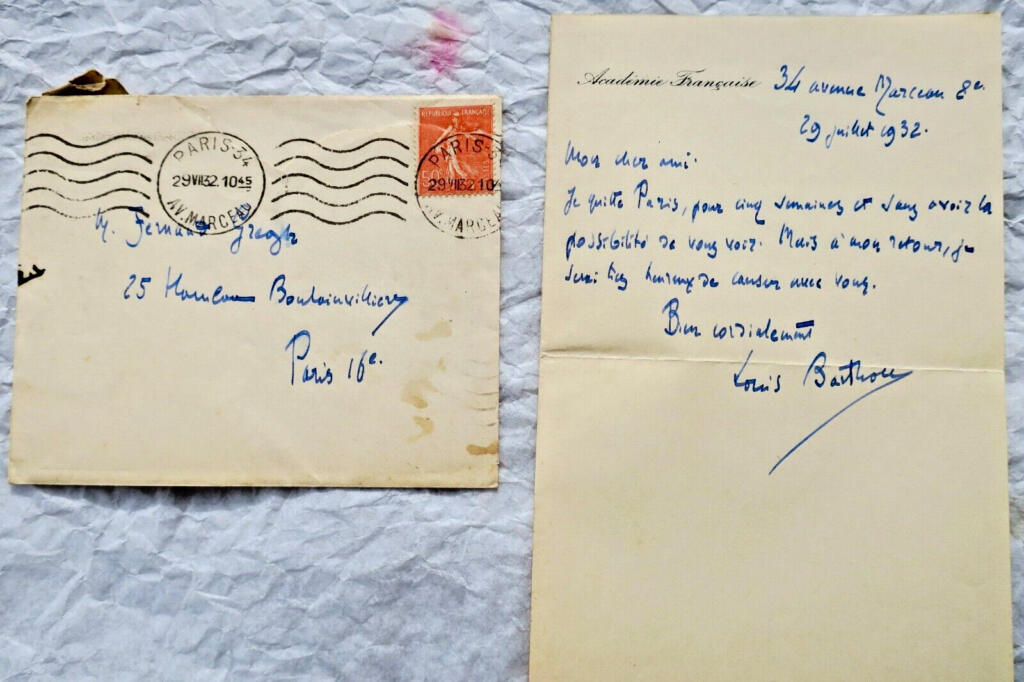 PARIS-34
29 VII 32. 10 45
AV. MARCEAU
REPUBLIQUE FRANÇAISE
50
PARIS-34
29 VII 32. 10
AV. MARCEAU
M. Fernand Gregh
25 Hameau Boulainvilliers
Paris 16e.
Académie Française
34 avenue Marceau 8e.
29 juillet 1932.
Mon cher ami.
Je quitte Paris, pour cinq semaines et sans avoir la
possibilité de vous voir. Mais à mon retour, je
serai bien heureux de causer avec vous.
Bien cordialement
Louis Barthou